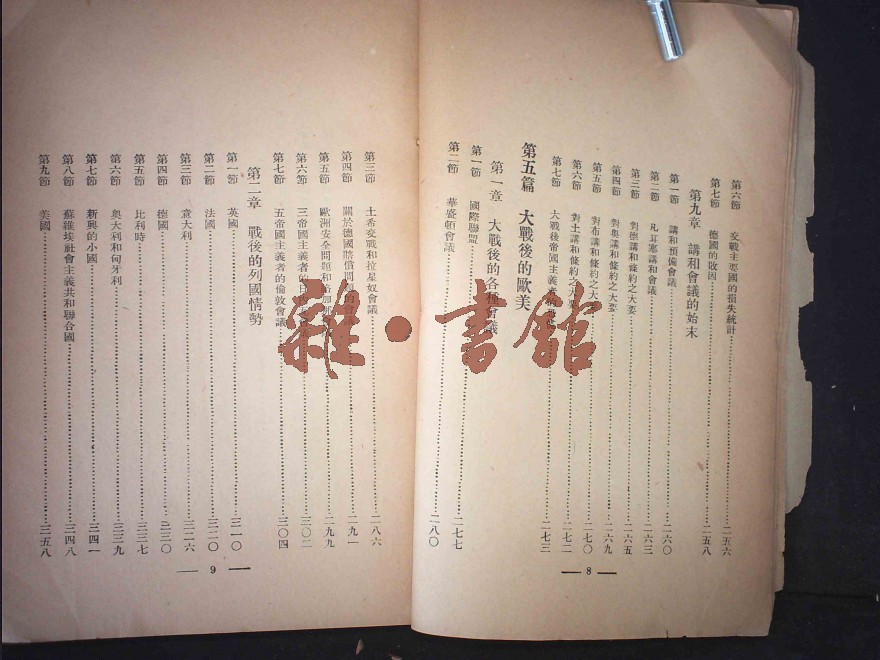 第六節 交戰主要國的損失統計 二五六
第七節 德國的敗因 二五八
第九章 講和會議的始末
第一節 講和預備會議 二六〇
第二節 凡耳塞講和會議 二六三
第三節 對德講和條約之大要 二六五
第四節 對奧講和條約之大要 二六九
第五節 對布講和條約之大 二七〇
第六節 對土講和條約之大要 二七二
第七節 大戰後帝國主義 二七三
第五篇 大戰後的歐美
第一章 大戰後的各種會議
第一節 國際聯盟 二七七
第二節 華盛頓會議 二八〇
8
第三節 土希交戰和拉星奴會議 二八六
第四節 關於德國賠償問題 二九一
第五節 歐洲安全問題和 二九九
第六節 三帝國主義者的日內 三〇二
第七節 五帝國主義者的倫敦會議 三〇四
第二章 戰後的列國情勢
第一節 英國 三一〇
第二節 法國 三二〇
第三節 意大利 三二六
第四節 德國 三三〇
第五節 比利時 三三七
第六節 奧大利和匈牙利 三三九
第七節 新興的小國 三四一
第八節 蘇維埃社會主義共和聯合國 三四八
第九節 美國 三五八
9
雜·書館